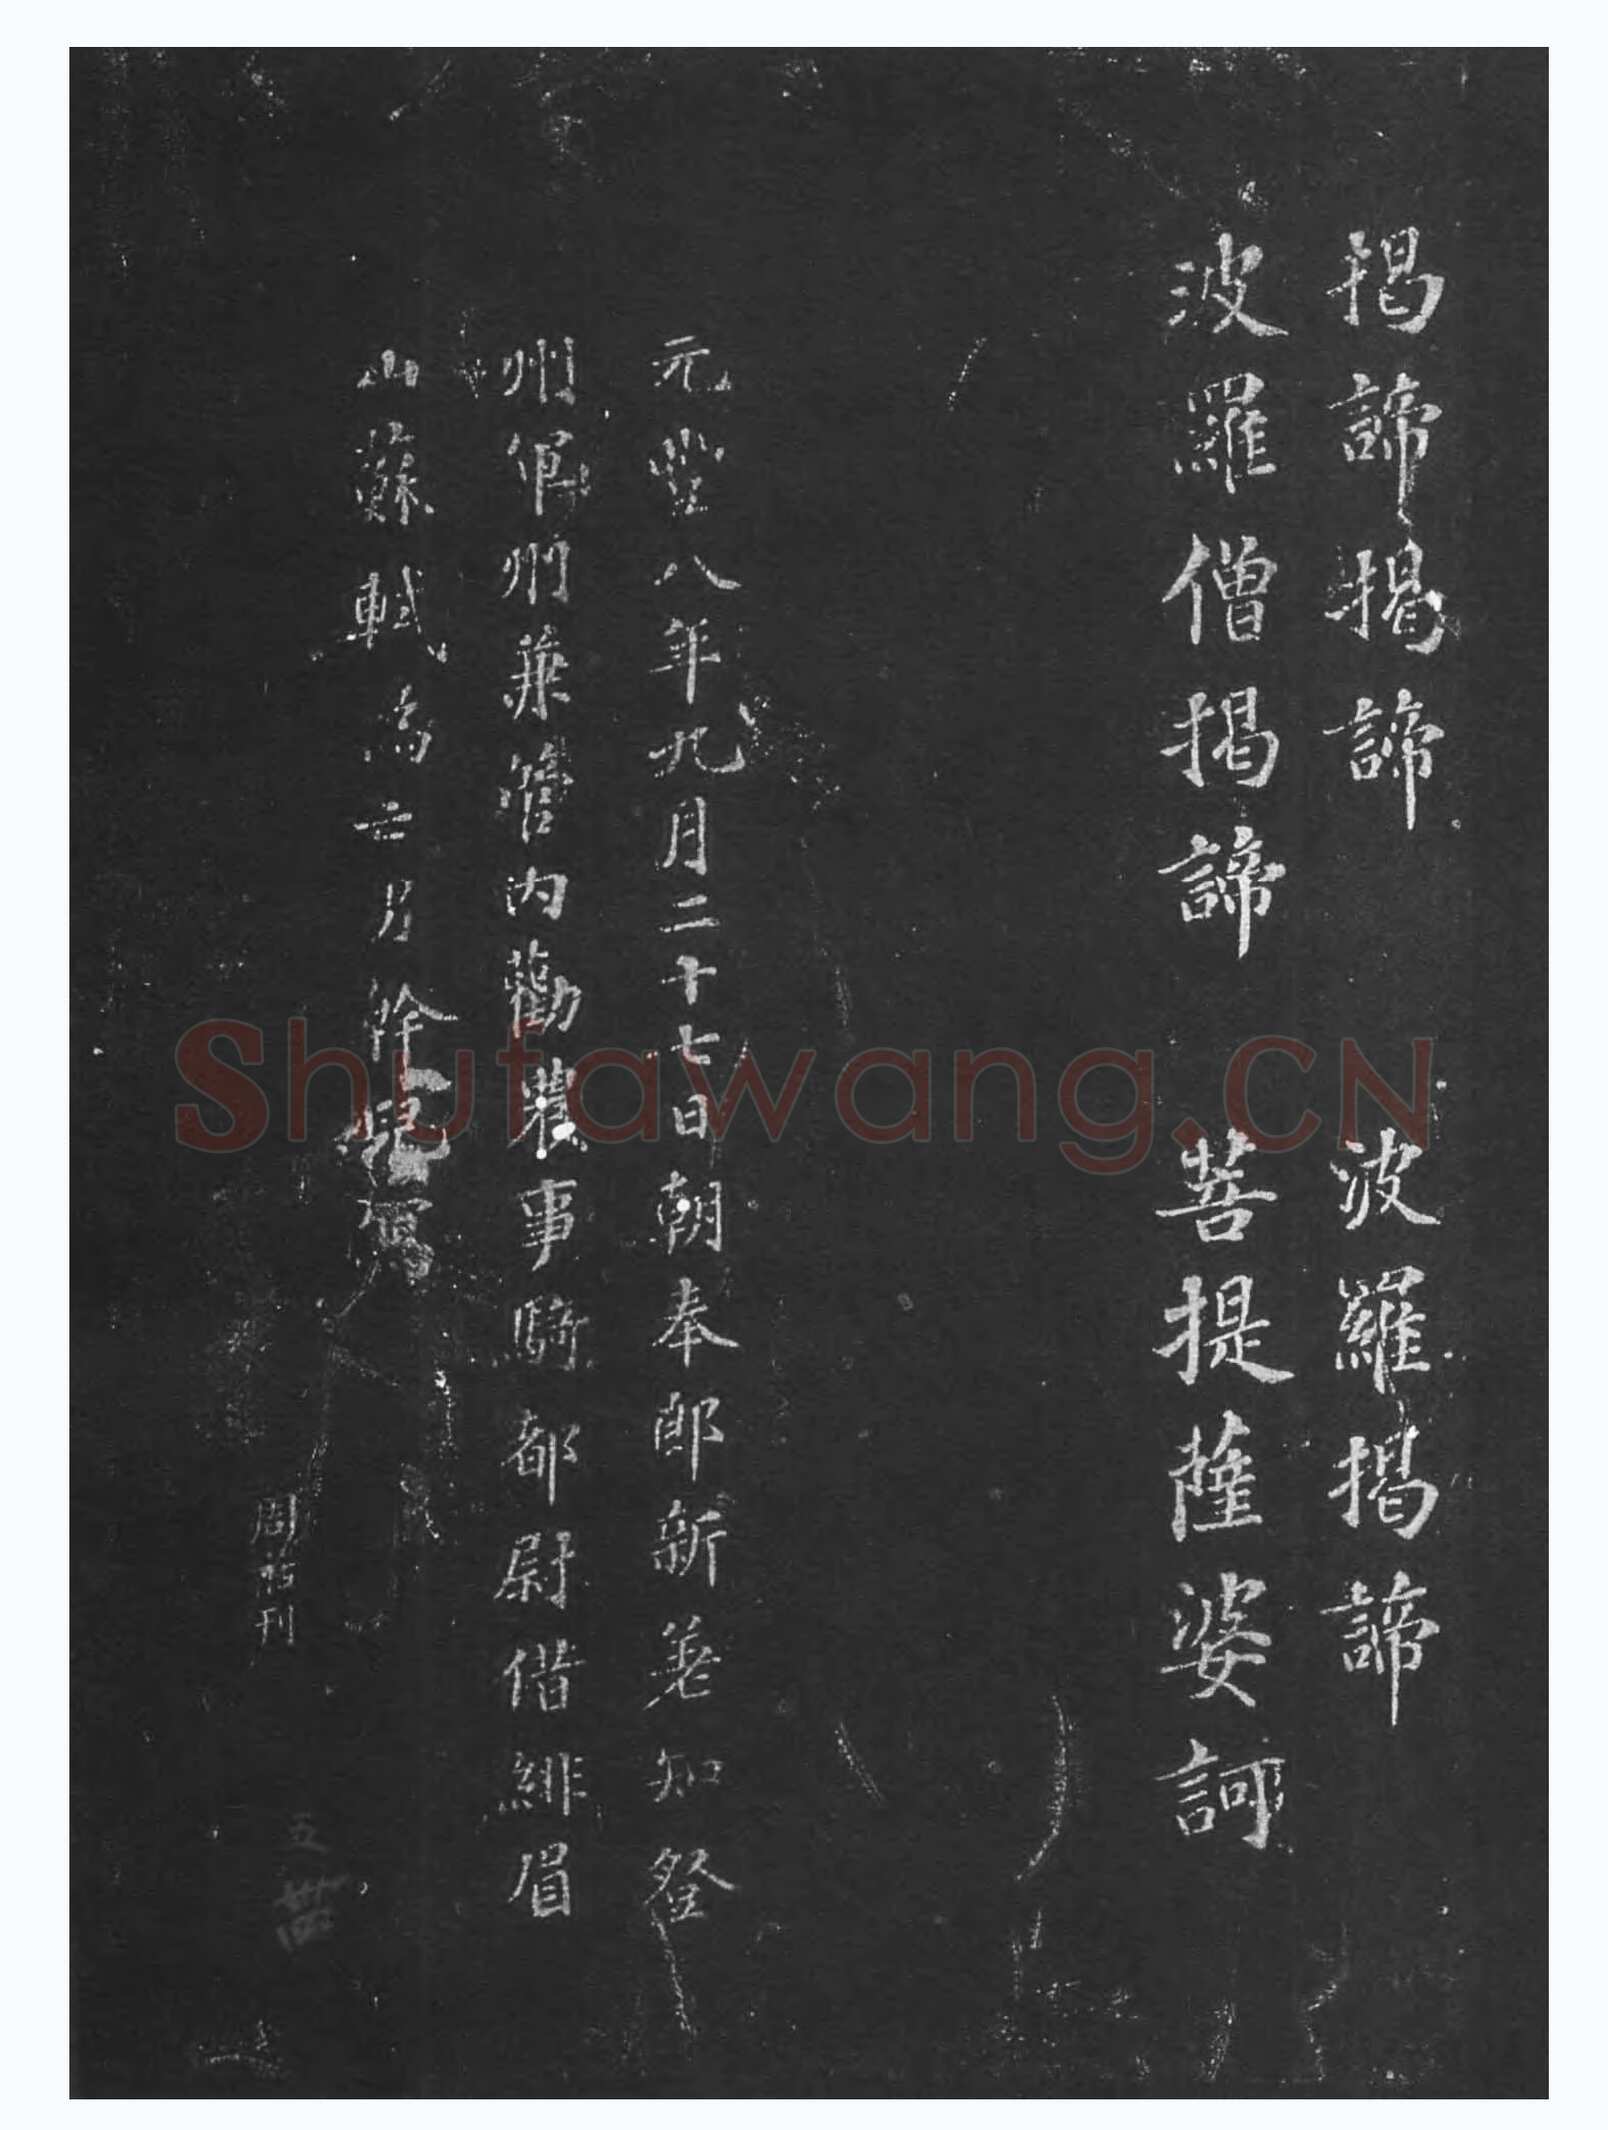 揭諦揭諦 波羅揭諦
波羅僧揭諦 菩提薩婆訶
元豐八年九月二十七日朝奉郎新差知登
州軍州兼管內勸農事騎都尉借緋眉
山蘇軾為亡
周 刊
Shufawang.CN